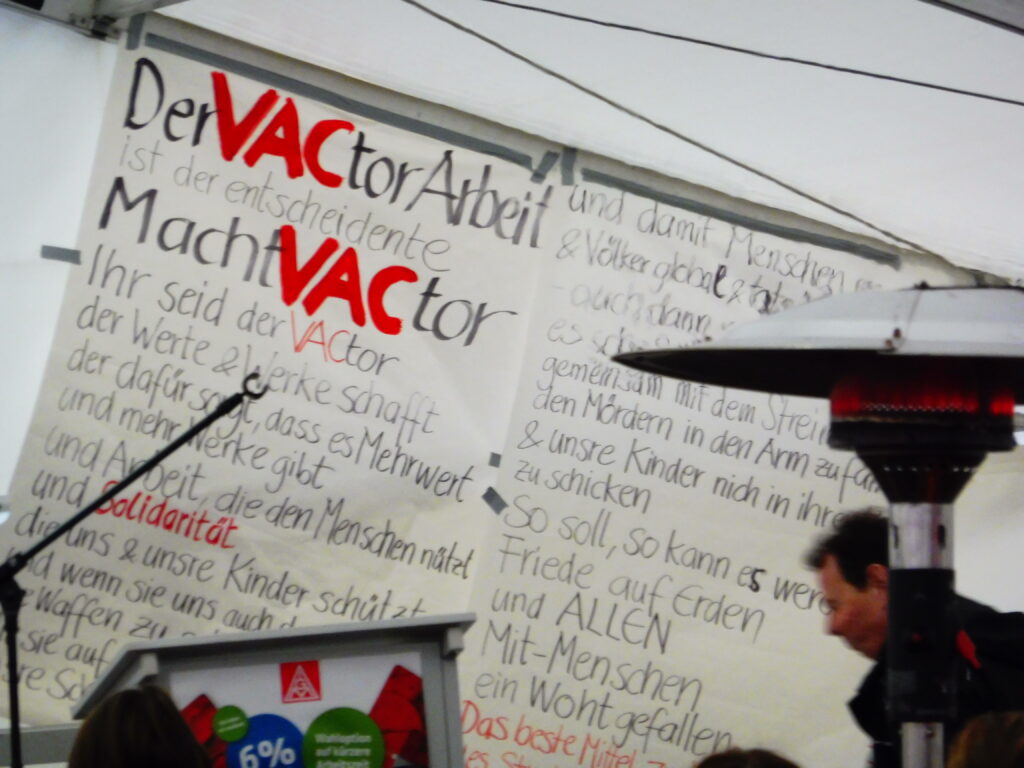 Der VACtor Arbeit
ist der entscheidente
Macht VACtor
Ihr seid der VACtor
der Werte & Werke schafft
der dafür sorgt, dass es Mehrwert
und mehr Werke gibt
und Arbeit, die den Menschen nützt
und Solidarität
die uns & unsre Kinder schützt
wenn sie uns auch
Waffen zu
sie auf
und damit Menschen
& Völker global &
auch dann
es
gemeinsam mit dem Strei
den Mördern in den Arm zu fa
& unsre Kinder nich in ihre
zu schicken
So soll, so kann es werd
Friede auf Erden
und ALLEN
Mit-Menschen
ein Wohlgefallen
Das beste Mittel
6%
Wahloption
auf kürzere
Arbeitszeit